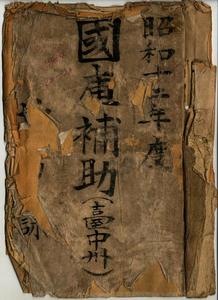 昭和十二年度
國庫補助(臺中州)